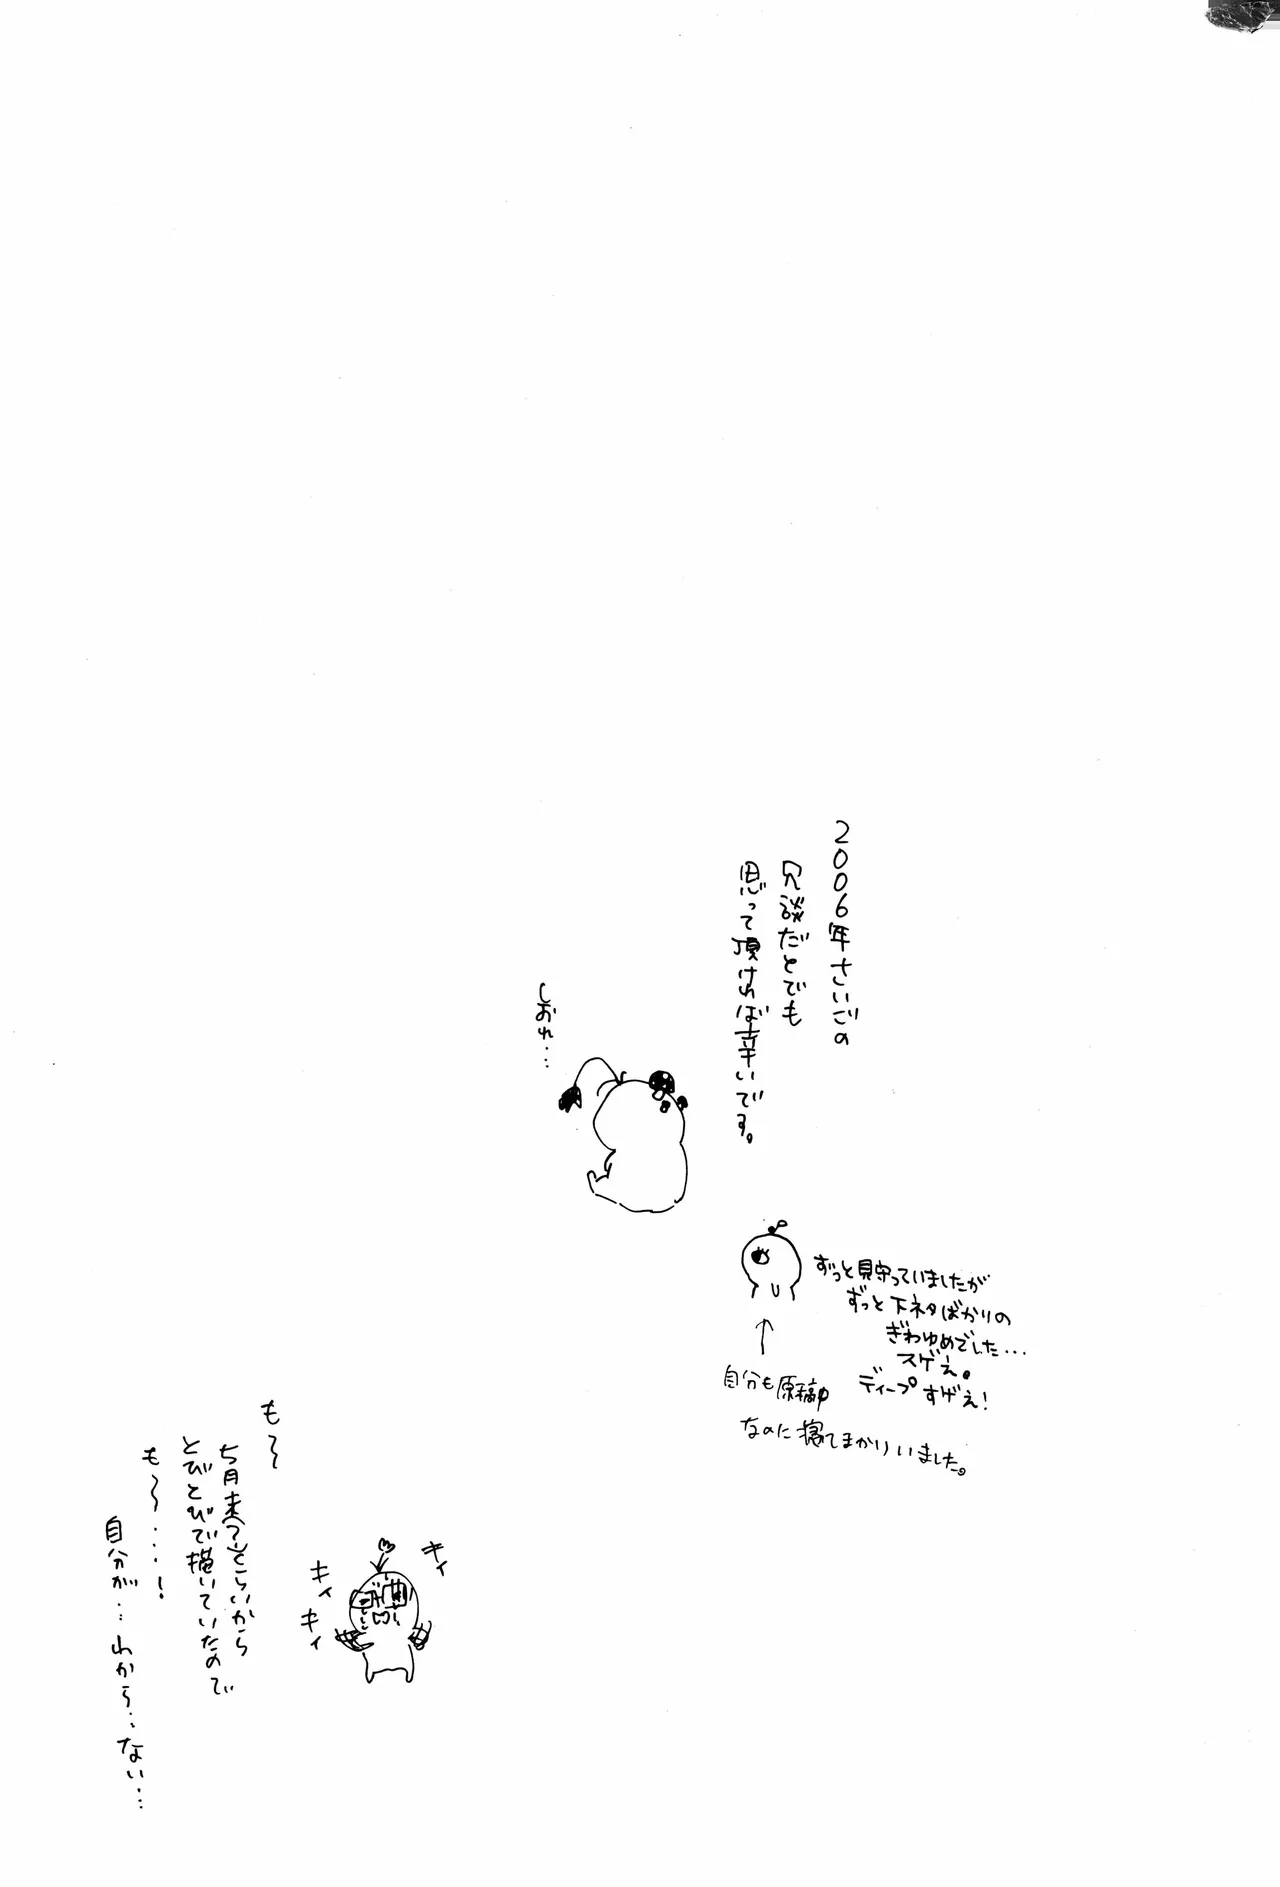 2006年さいごの
冗談だとでも
思って頂ければ幸いです。
しおれ…
ずっと見守っていましたが
ずっと下ネタばかりの
ぎわゆめでした…
スゲぇ。
ディープすげぇ!
↑
自分も原稿中
なのに寝てまかりいました。
キィ
キィ
キィ
も〜〜
5月末(?)くらいから
とびとびで描いていたので
も〜〜….!
自分が…わから…ない…